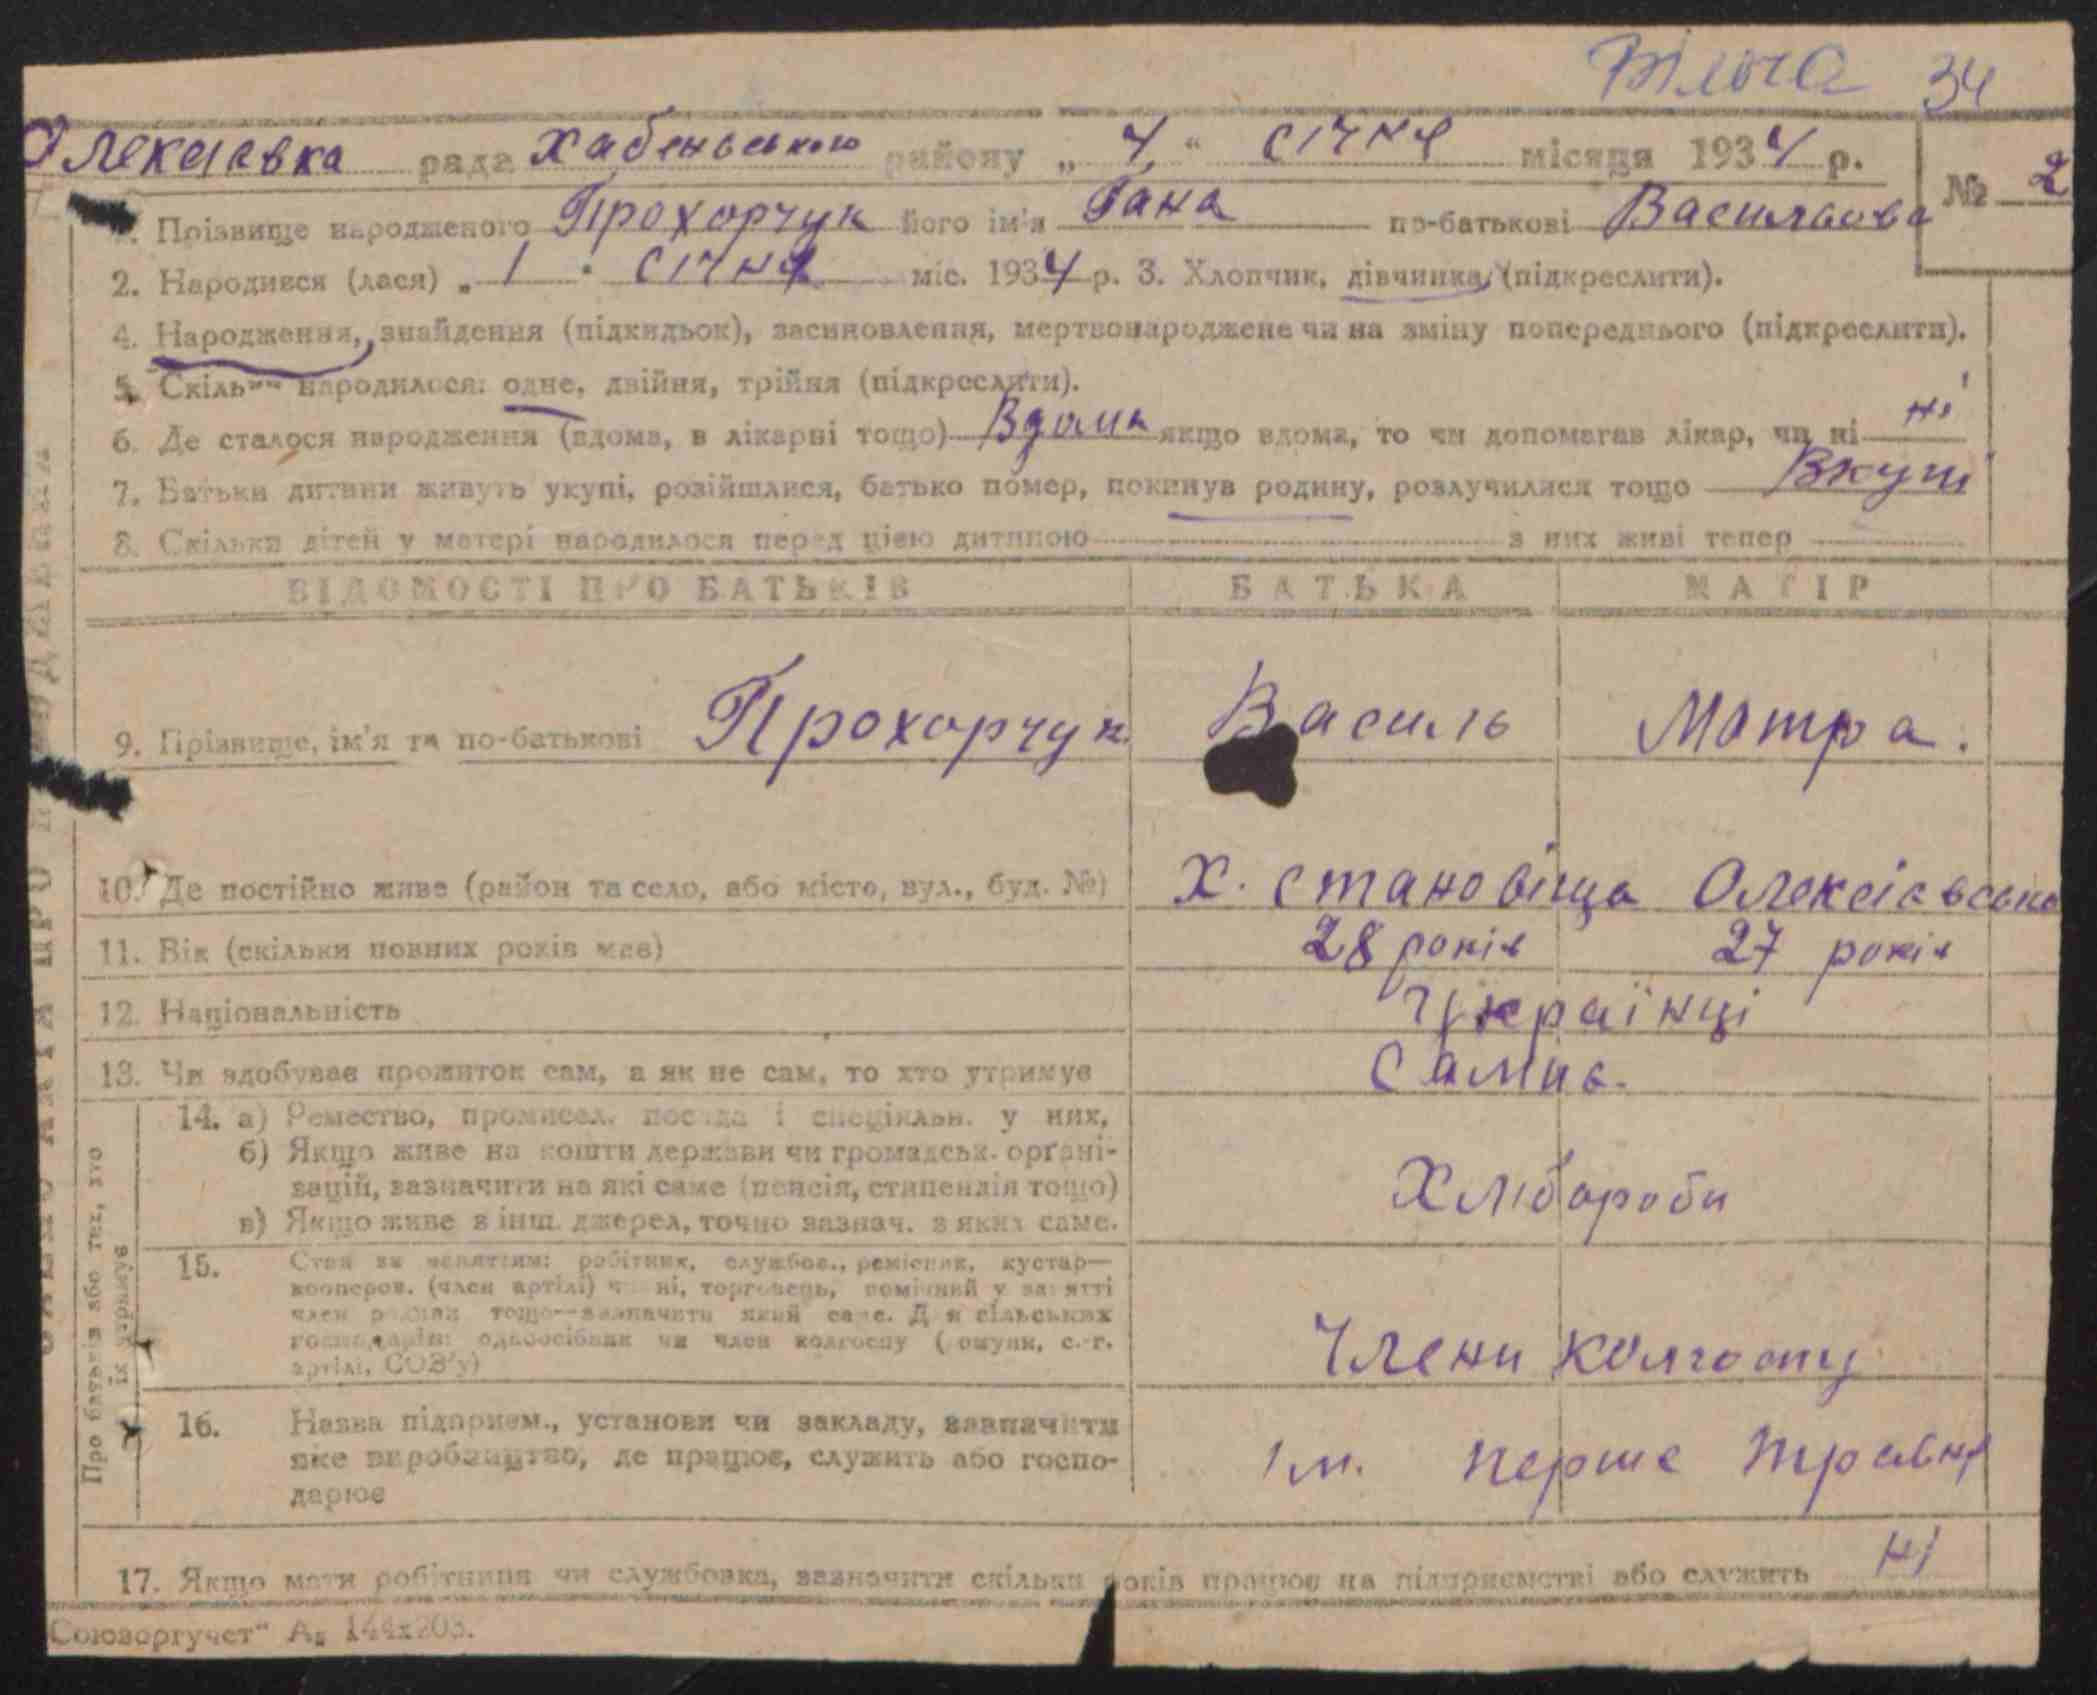 Вільча 34
Олексіевка рада Хабенського району „ 4 “ січня місяця 1934 р. № 2
1. Прізвище народженого Прохорчук його ім'я Гана по-батькові Васильова
2. Народився (лася) „ 1 " січня міс. 1934 р. 3. Хлопчик, дівчинка, (підкреслити).
4. Народження, знайдення (підкидьок), засиновлення, мертвонароджене чи на зміну попереднього (підкреслити).
5. Скільки народилося: одне, двійня, трійня (підкреслити).
6. Де сталося народження (вдома, в лікарні тощо) Вдома якщо вдома, то чи допомагав лікар, чи ні ні
7. Батьки дитини живуть укупі, розійшлися, батько помер, покинув родину, розлучилися тощо Вкупі
8. Скільки дітей у матері народилося перед цією дитиною з них живі тепер
ВІДОМОСТІ ПРО БАТЬКІВ БАТЬКА МАТІР
9. Прізвище, ім'я та по-батькові Прохорчук Василь Мотра.
10. Де постійно живе (район та село, або місто, вул., буд. №) х. становіща Олексіевська
11. Вік (скільки повних років має) 28 років 27 років
12. Національність Українці
13. Чи здобуває прожиток сам, а як не сам, то хто утримує Самие.
Про батьків або тих, хто їх утримує
14. а) Ремество, промисел, посада і спеціяльн. у них,
б) Якщо живе на кошти держави чи громадськ. органі-
зацій, зазначити на які саме (пенсія, стипендія тощо)
в) Якщо живе з інш. джерел, точно зазнач. з яких саме.
Хлібороби
15. Стан за заняттям: робітник, службов., ремісник, кустар—
кооперов. (член артілі) чи ні, торговець, помічний у занятті
член родини тощо—зазначити який саме. Для сільських
господарів: одноосібник чи член колгоспу (комуни, с.-г.
артілі, СОЗ'у)
Члени колгоспу
16. Назва підприєм., установи чи закладу, зазначити
яке виробництво, де працює, служить або госпо-
дарює
ім. перше травня
17. Якщо мати робітниця чи службовка, зазначити скільки років працює на підприємстві або служить ні
Союзоргучет" А5 144x203.